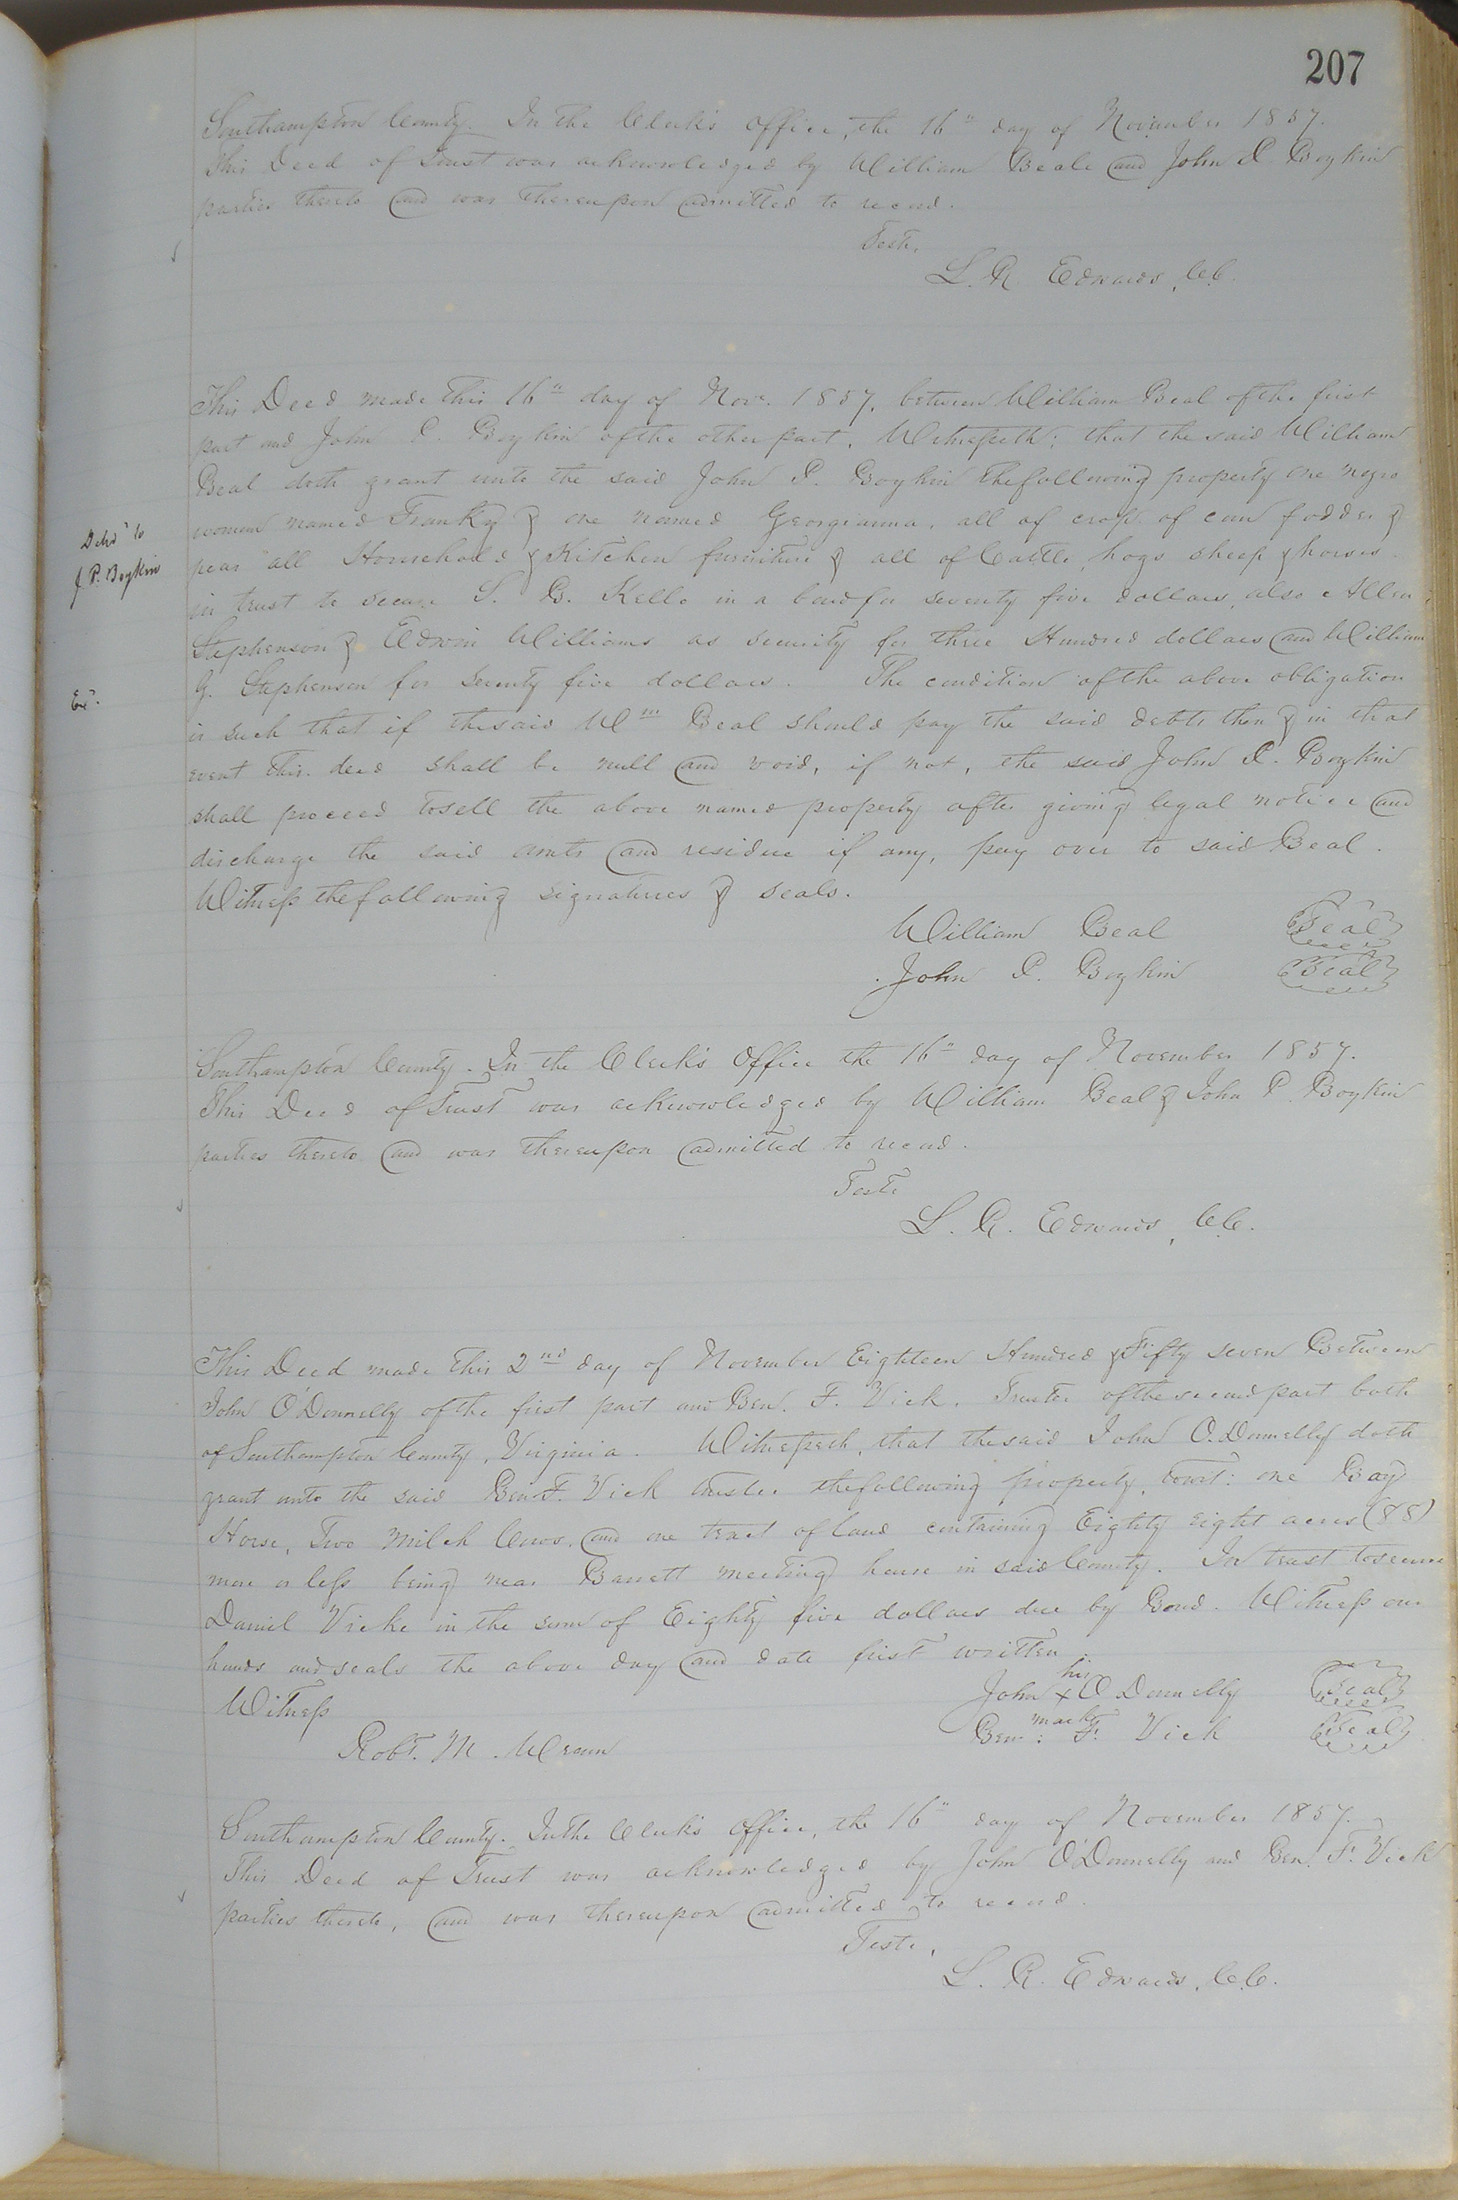 207
Southampton County. In the Clerk's Office, the 16" day of November 1857.
This Deed of Trust was acknowledged by William Beale and John P. Boykin
parties thereto and was thereupon admitted to record.
Teste,
L. R. Edwards, C.C.
This Deed made this 16" day of Nov. 1857, between William Beal of the first
part and John P. Boykin of the other part. Witnesseth; that the said William
Beal doth grant unto the said John P. Boykin the following property one negro
woman named Franky & one named Georgianna, all of crop of corn fodder &
peas all Household & Kitchen furniture & all of Cattle, hogs sheep & horses.
in trust to secure S. B. Kello in a bond for seventy five dollars, also Allen
Stephenson & Edwin Williams as security for three Hundred dollars and William
G. Stephenson for Seventy five dollars. The condition of the above obligation
is such that if the said Wm Beal should pay the said debts then & in that
event this deed shall be null and void, if not, the said John P. Boykin
shall proceed to sell the above named property after giving legal notice and
discharge the said amts and residue if any, pay over to said Beal.
Witness the following signatures & seals.
William Beal Seal
John P. Boykin Seal
Deld to
J. P. Boykin
Southampton County. In the Clerk's Office the 16" day of November 1857.
This Deed of Trust was acknowledged by William Beal & John P. Boykin
parties thereto and was thereupon admitted to record.
Teste
L. R. Edwards, C.C.
This Deed made this 2nd day of November Eighteen Hundred & Fifty seven Between
John O'Donnelly of the first part and Ben. F. Vick, Trustee of the second part both
of Southampton County, Virginia. Witnesseth, that the said John O.Donnelly doth
grant unto the said Ben. F. Vick trustee the following property, towit: one Bay
Horse, Two Milch Cows, and one tract of land containing Eighty eight acres (88)
more or less being near Barrett meeting house in said County. In trust to secure
Daniel Vicke in the sum of Eighty five dollars due by Bond. Witness our
hands and seals the above day and date first written.
Witness
Robt. M.
his
John x O Donnelly Seal
mark
Ben: F. Vick Seal
Southampton County. In the Clerk's Office, the 16" day of November 1857.
This Deed of Trust was acknowledged by John O'Donnelly and Ben. F. Vick
parties thereto, and was thereupon admitted to record.
Teste,
L. R. Edwards, C.C.